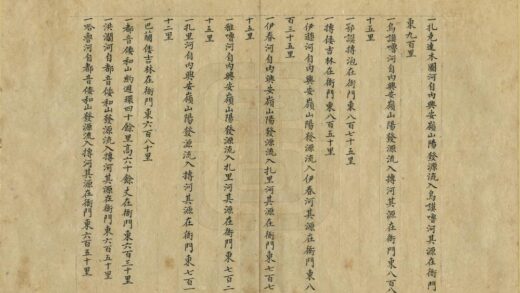 一扎克達木圖河自內興安嶺山陽發源流入烏謨嚕河其源在衙門
東九百里
一烏謨嚕河自內興安嶺山陽發源流入摶河其源在衙門東八百八
十五里
一鄂謨摶泡在衙門東八百七十五里
一摶倭吉林在衙門東八百五十里
一伊遜河自內興安嶺山陽發源流入伊春河其源在衙門東八
百三十五里
一伊春河自內興安嶺山陽發源流入扎里河其源在衙門東七百七
十五里
一雅嚕河自內興安嶺山陽發源流入扎里河其源在衙門東七百二
十五里
一扎里河自內興安嶺山陽發源流入摶河其源在衙門東七百一
十二里
一巴蘭倭吉林在衙門東六百八十里
一都音倭和山約週環四十餘里高六十餘丈在衙門東六百三十里
一洪瀾河自都音倭和山發源流入摶河其源在衙門東六百五十里
一塔魯河自都音倭和山發源流入摶河其源在衙門東六百五十里